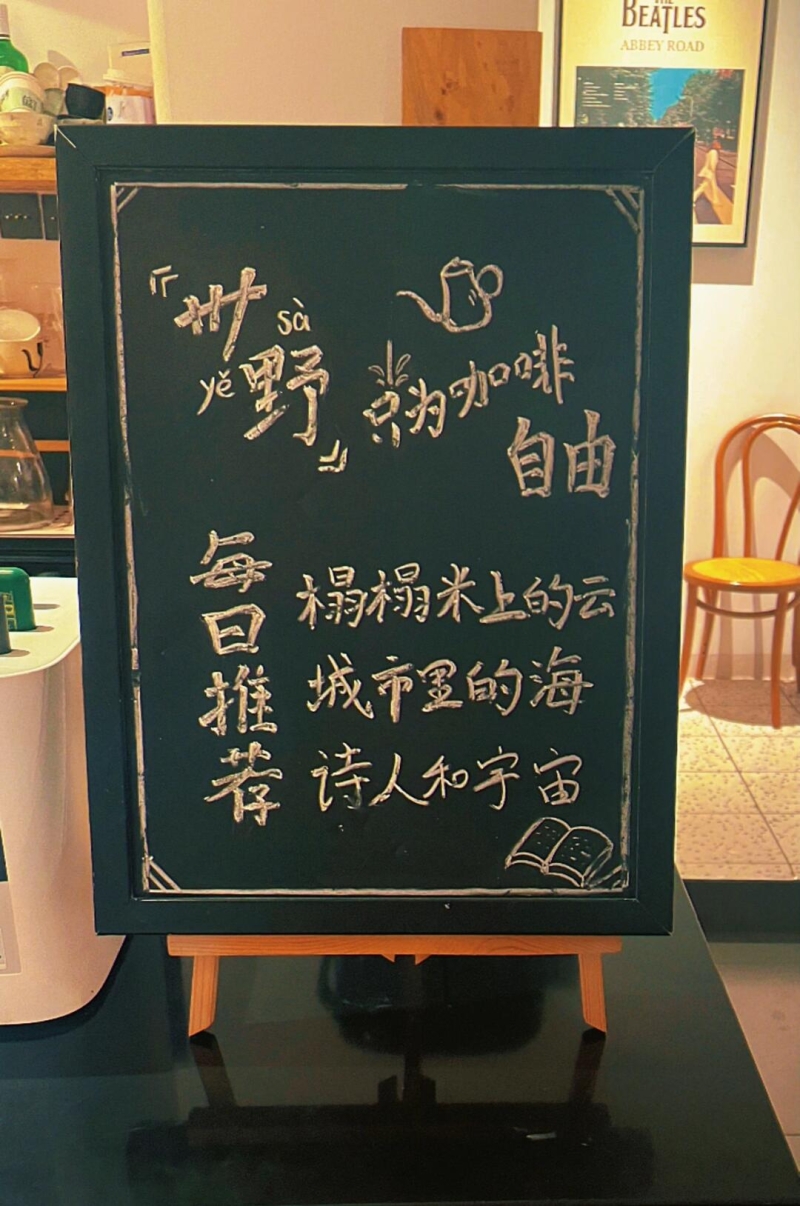 THE
BEATLES
ABBEY ROAD
『卅 sà
yě 野』
只为咖啡
自由
每日推荐
榻榻米上的云
城市里的海
诗人和宇宙